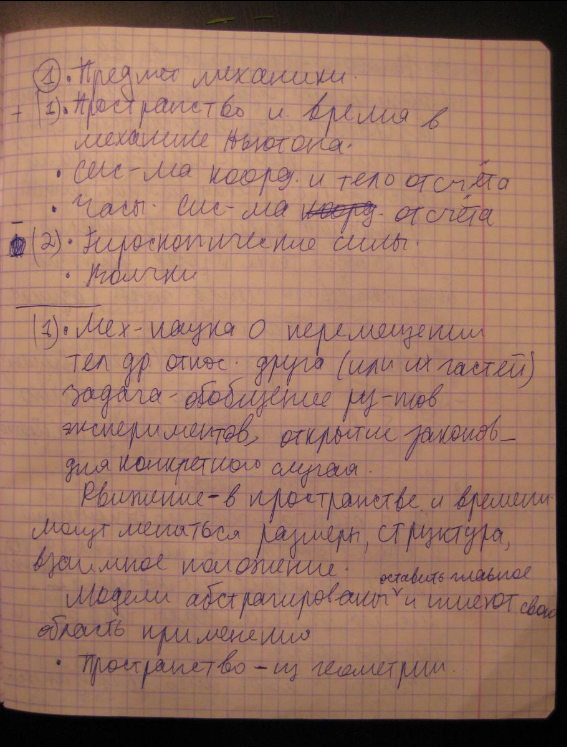 ① • Предмет механики.
+ (1) • Пространство и время в
механике Ньютона.
• Сис-ма коорд. и тело отсчёта
• Часы. Сис-ма коорд. отсчёта
(2) • Гироскопические силы.
• Волчки
(1) • Мех-наука о перемещении
тел др относ. друга (или их частей)
Задача - обобщение рез-тов
экспериментов, открытие законов -
для конкретного случая.
Движение - в пространстве и времени.
могут меняться размеры, структура,
взаимное положение.
оставить главное
Модели абстрагированы и имеют свою
область применения
• Пространство - из геометрии.